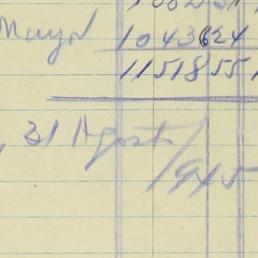 Mayo 1043624
1151855
31 Agosto/
1945